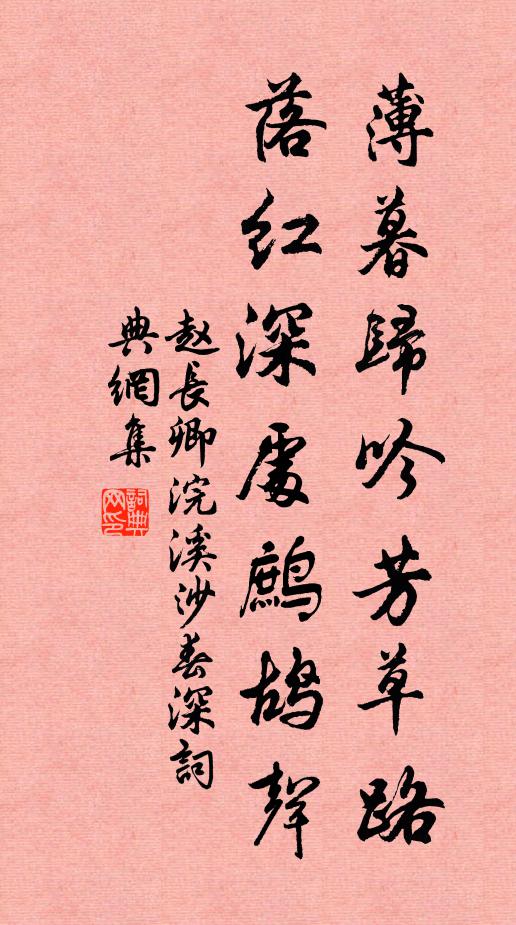 薄暮歸吟芳草路
落红深處鷓鴣聲
赵長卿浣溪沙春深詞
典網集
詞典網印